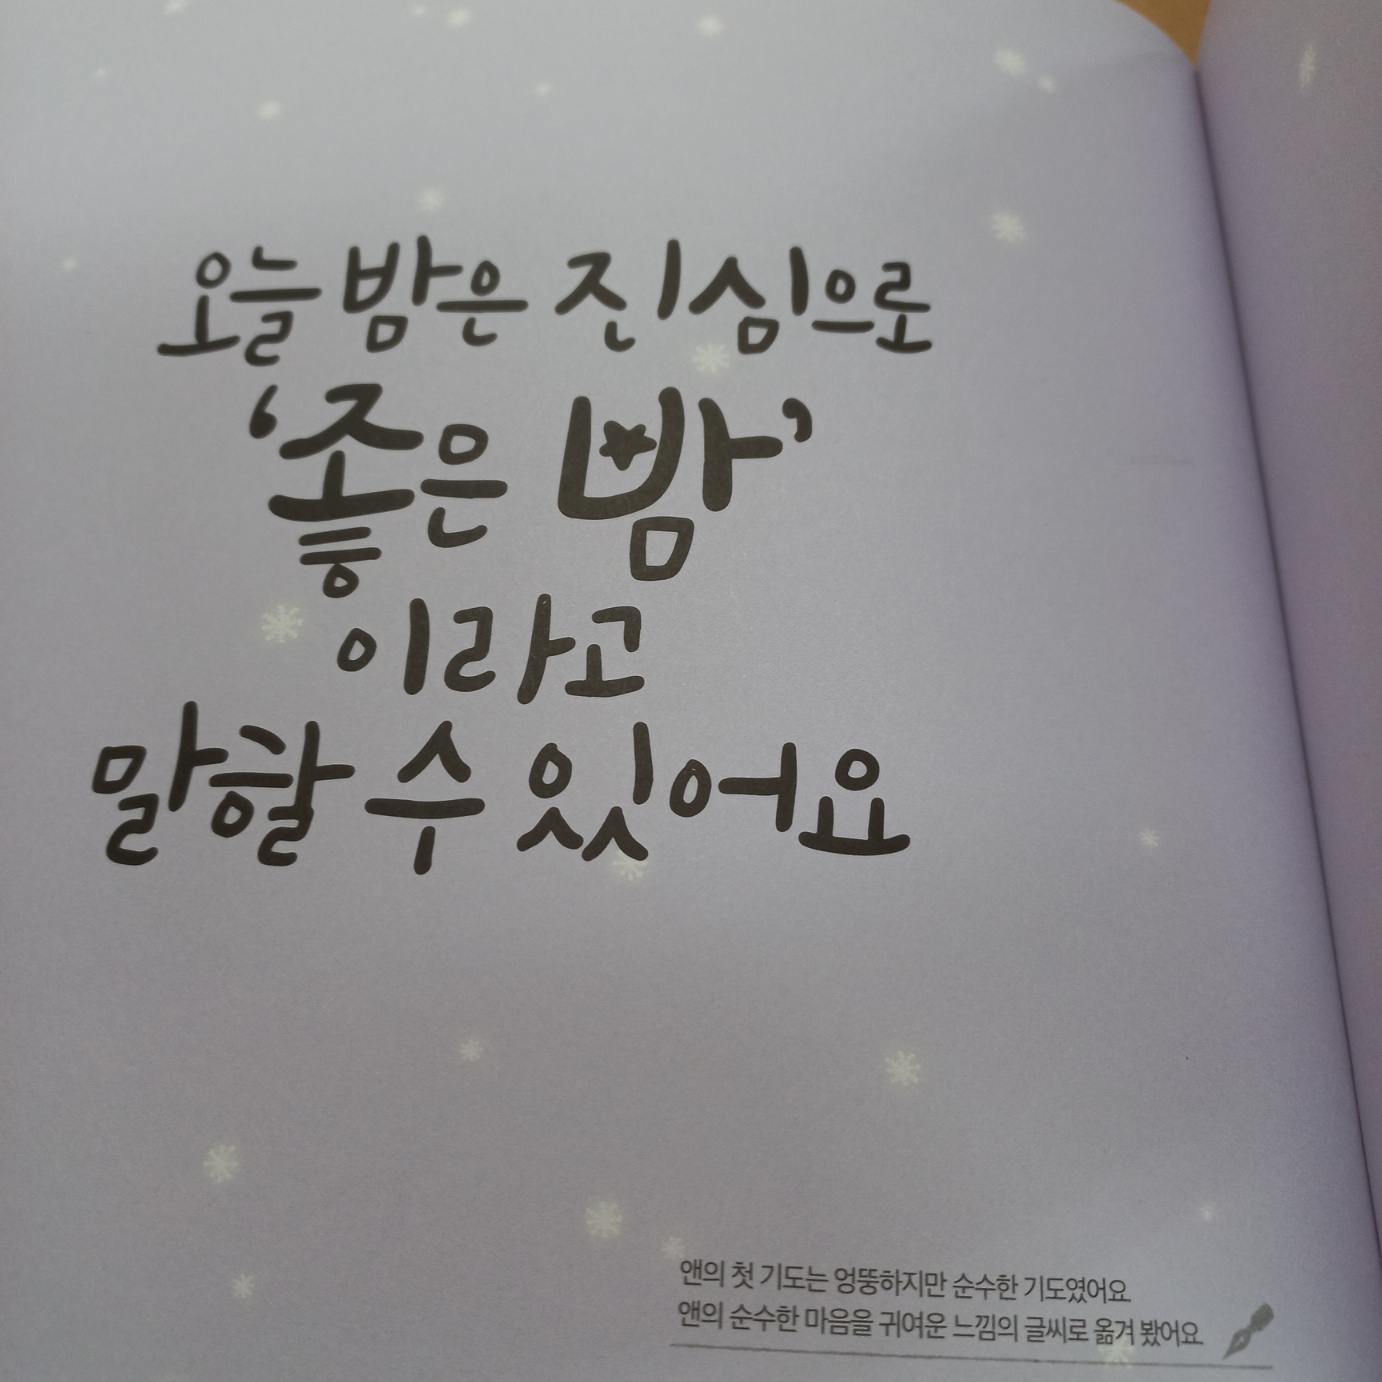 오늘 밤은 진심으로
‘좋은 밤’
이라고
말할 수 있어요
앤의 첫 기도는 엉뚱하지만 순수한 기도였어요
앤의 순수한 마음을 귀여운 느낌의 글씨로 옮겨 봤어요